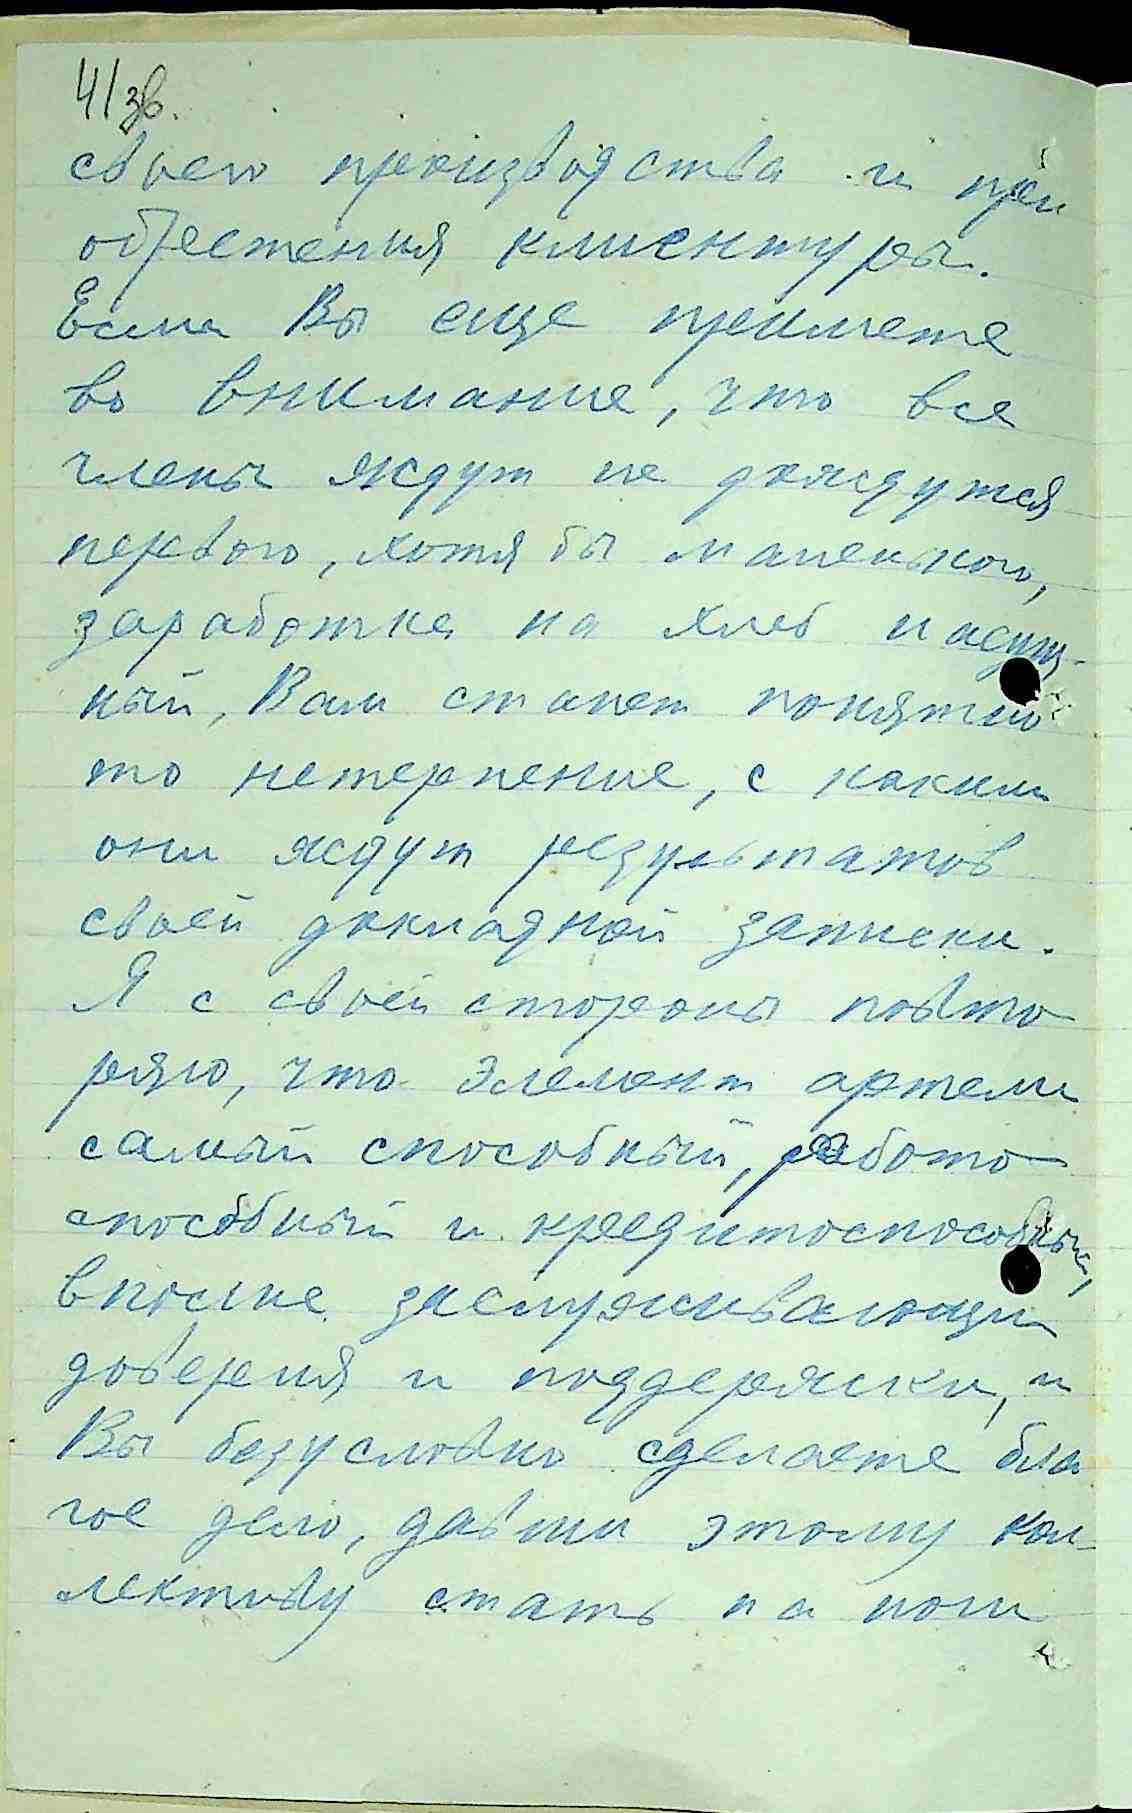 41/зв.
своего производства и при
обретения клиентуры.
Если Вы еще примете
во внимание, что все
члены ждут не дождутся
первого, хотя бы маленького,
заработка на хлеб насущ-
ный, Вам станет понятно
то нетерпение, с каким
они ждут результатов
своей докладной записки.
Я с своей стороны повто
ряю, что элемент артели
самый способный, работо
способный и кредитоспособный,
вполне заслуживающий
доверия и поддержки, и
Вы безусловно сделаете бла
гое дело, давши этому кол-
лективу стать на ноги